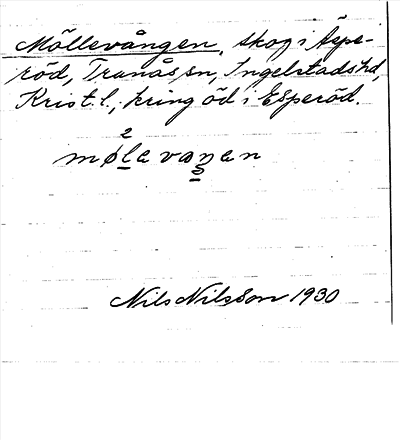 Möllevången, skog i Äspe-
röd, Tranås sn, Ingelstads hd,
Krist. l., kring öd i Esperöd.
2
møla vaŋan
2
Nils Nilsson 1930